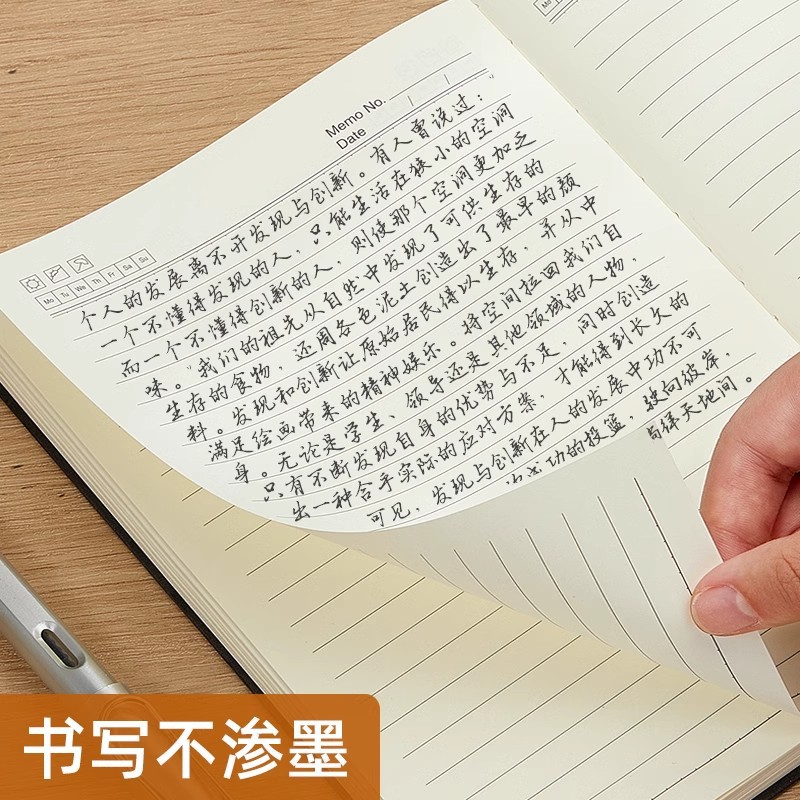 Memo No.
Date
Mo Tu We Th Fr Sa Su
个人的发展离不开发现与创新。有人曾说过：“
一个不懂得发现的人，只能生活在狭小的空洞
而一个不懂得创新的人，则使那个空洞更加乏
味。”我们的祖先从自然中发现了可供生存的
生存的食物，还用各色泥土创造出了最早的颜
料。发现和创新让原始居民得以生存，并从中
满足绘画带来的精神娱乐。将空间拉回我们自
身。无论是学生、领导还是其他领域的人物，
只有不断发现自身的优势与不足，同时创造
出一种合乎实际的应对方案，才能得到长久的
可见，发现与创新在人的发展中功不可
功的投篮，驶向彼岸，
徉天地间。
Mo
书写不渗墨